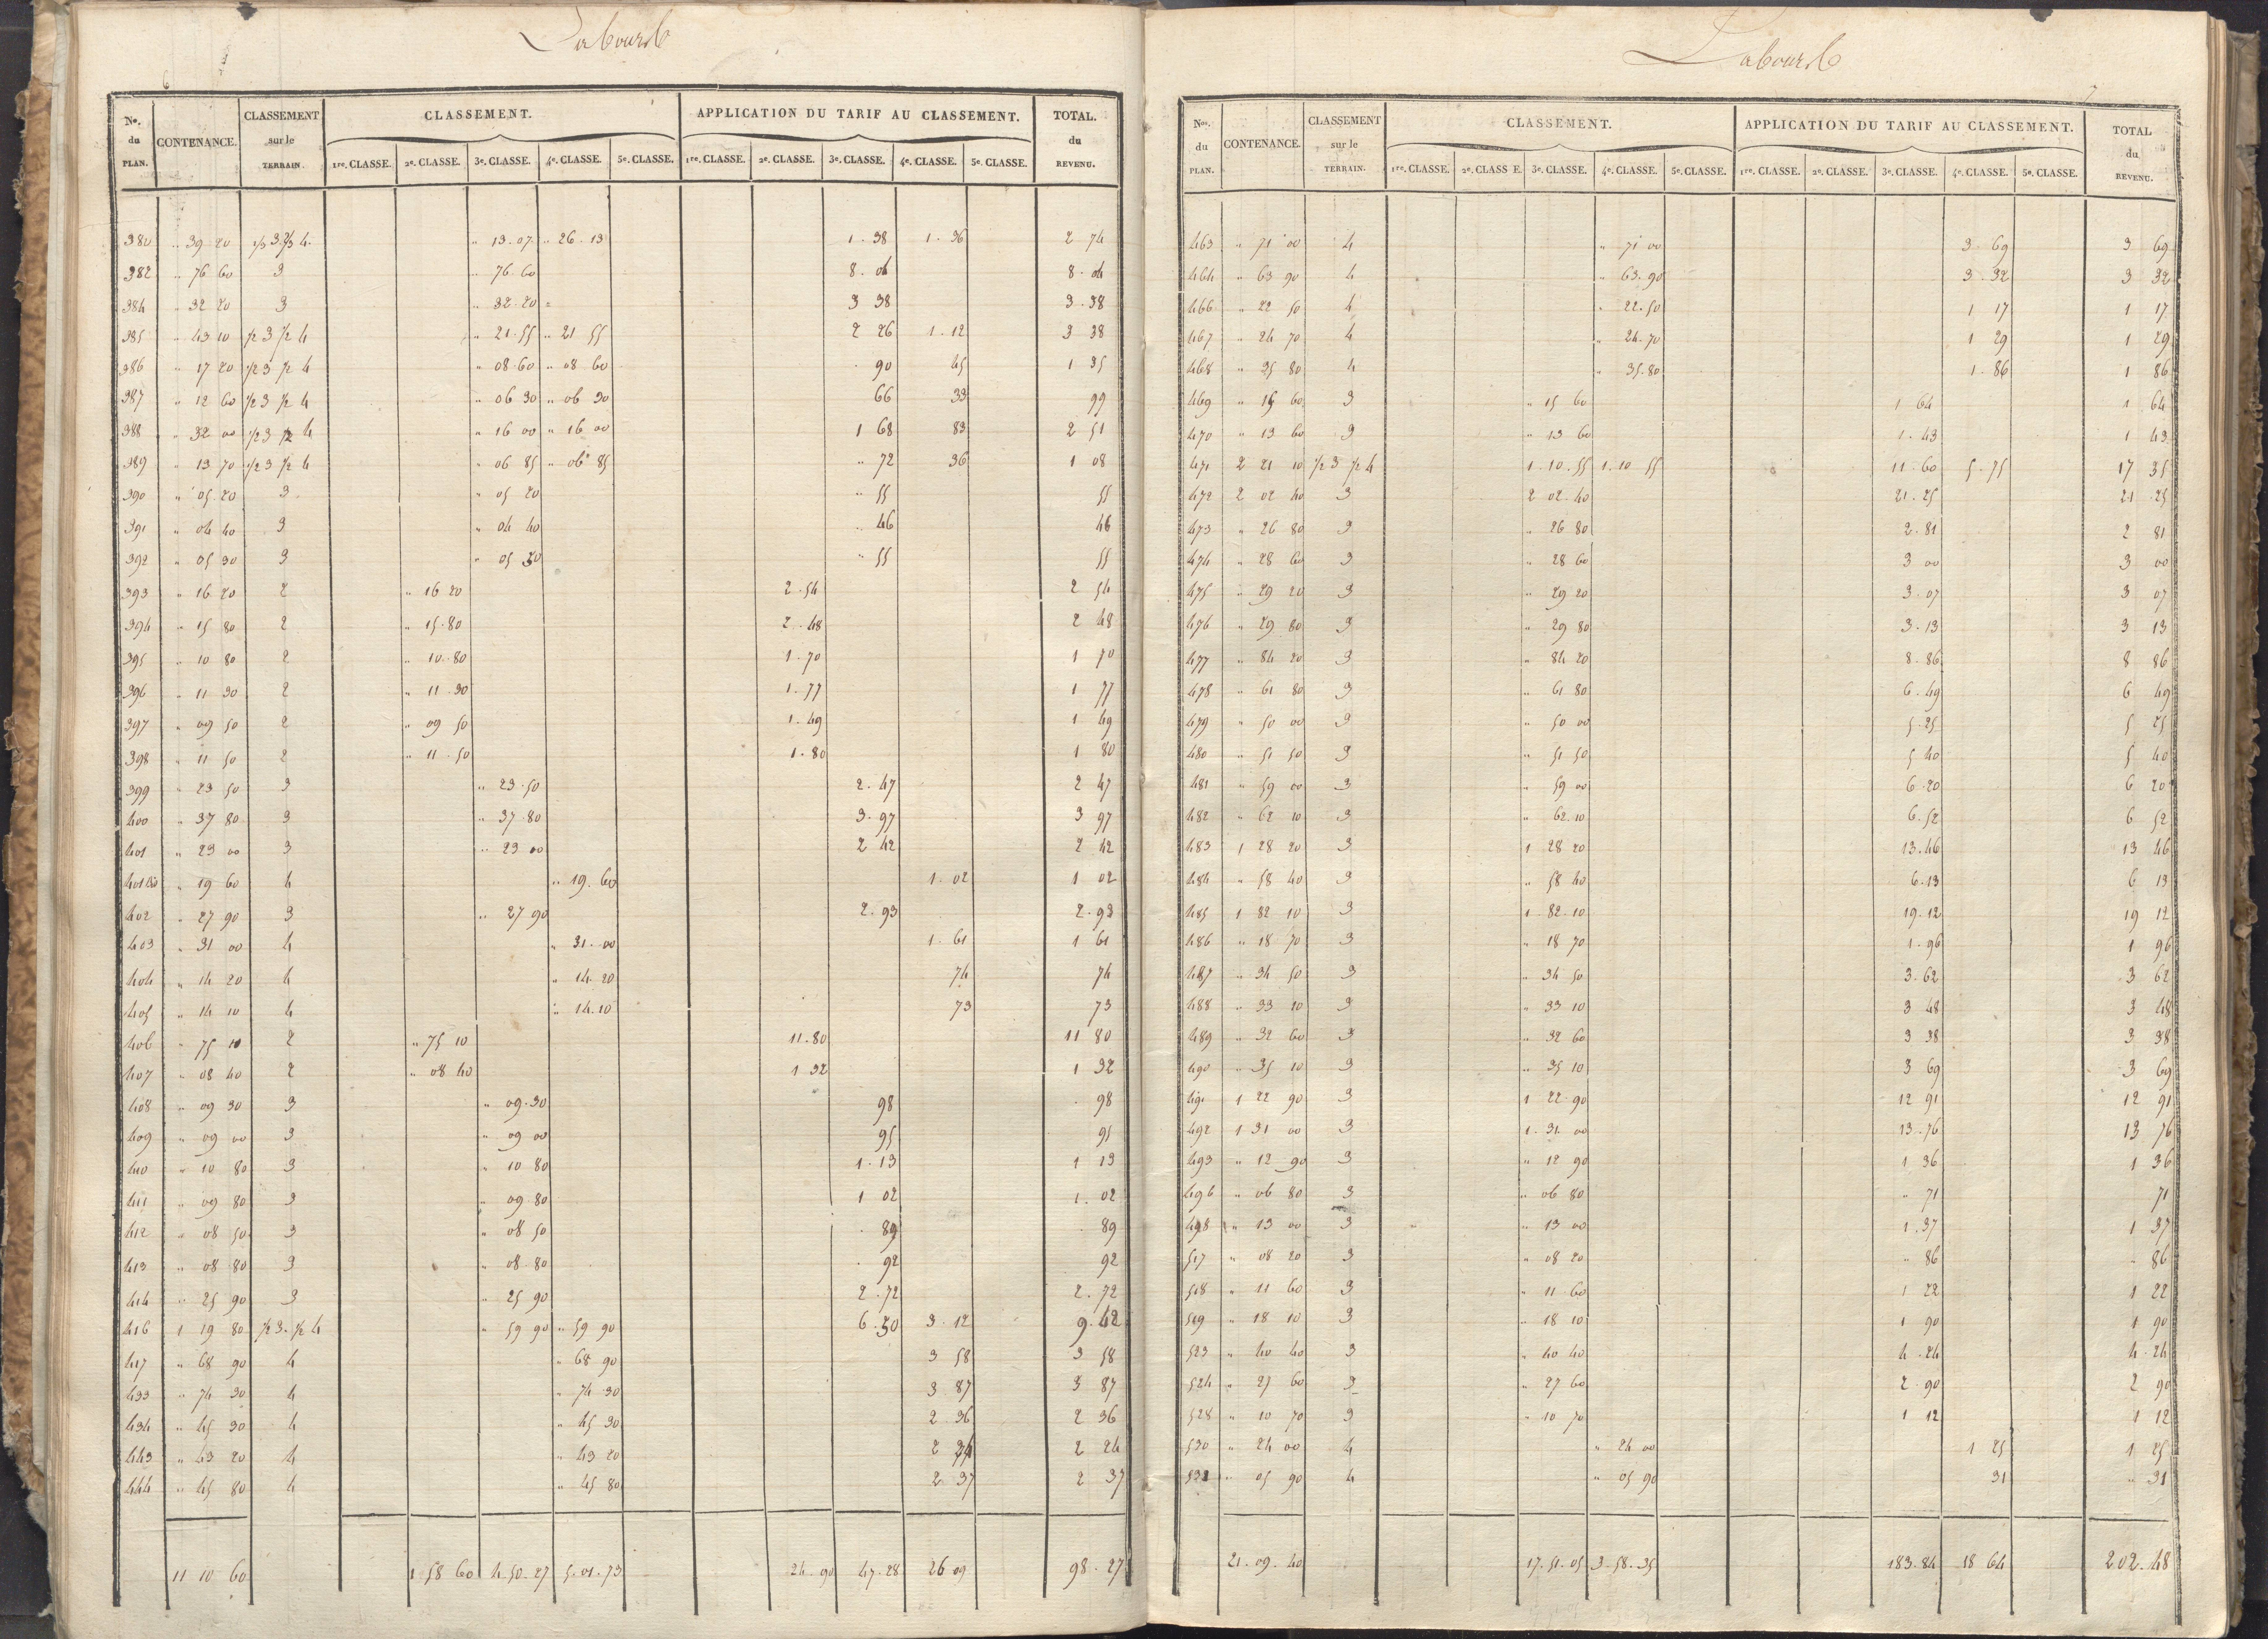 6
Labourb
No. du PLAN. CONTENANCE. CLASSEMENT sur le TERRAIN. CLASSEMENT. APPLICATION DU TARIF AU CLASSEMENT. TOTAL. du REVENU.
1re. CLASSE. 2e. CLASSE. 3e. CLASSE. 4e. CLASSE. 5e. CLASSE. 1re. CLASSE. 2e. CLASSE. 3e. CLASSE. 4e. CLASSE. 5e. CLASSE.
380 " 39 20 1/3 3. 2/3 4. " 13.07 " 26.13 1.38 1.36 2 74
382 " 76 60 3 " 76.60 8.04 8.04
384 " 32 20 3 " 32.20 3 38 3.38
385 " 43 10 1/2 3 1/2 4 " 21.55 " 21 55 2 26 1.12 3 38
386 " 17 20 1/2 3 1/2 4 " 08.60 " 08 60 90 45 1 35
387 " 12 60 1/2 3 1/2 4 " 06 30 " 06 30 66 33 99
388 " 32 00 1/2 3 1/2 4 " 16 00 " 16 00 1 68 83 2 51
389 " 13 70 1/2 3 1/2 4 " 06 85 " 06 85 " 72 36 1 08
390 " 05 20 3 " 05 20 " 55 55
391 " 04 40 3 " 04 40 " 46 46
392 " 05 30 3 " 05 30 " 55 55
393 " 16 20 2 " 16 20 2.54 2 54
394 " 15 80 2 " 15.80 2.48 2 48
395 " 10 80 2 " 10.80 1.70 1 70
396 " 11 30 2 " 11.30 1.77 1 77
397 " 09 50 2 " 09 50 1.49 1 49
398 " 11 50 2 " 11.50 1.80 1 80
399 " 23 50 3 " 23.50 2.47 2 47
400 " 37 80 3 " 37.80 3.97 3 97
401 " 23 00 3 " 23 00 2 42 2 42
401 bis " 19 60 4 " 19.60 1.02 1 02
402 " 27 90 3 " 27 90 2.93 2.93
403 " 31 00 4 " 31.00 1.61 1 61
404 " 14 20 4 " 14.20 74 74
405 " 14 10 4 " 14.10 73 73
406 " 75 10 2 " 75 10 11.80 11 80
407 " 08 40 2 " 08 40 1 32 1 32
408 " 09 30 3 " 09.30 98 98
409 " 09 00 3 " 09 00 95 95
410 " 10 80 3 " 10 80 1.13 1 13
411 " 09 80 3 " 09 80 1 02 1.02
412 " 08 50 3 " 08 50 89 89
413 " 08 80 3 " 08.80 92 92
414 " 25 90 3 " 25 90 2.72 2.72
416 1 19 80 1/2 3. 1/2 4 " 59 90 " 59 90 6.30 3.12 9.42
417 " 68 90 4 " 68 90 3 58 3 58
433 " 74 30 4 " 74 30 3 87 3 87
434 " 45 30 4 " 45 30 2 36 2 36
443 " 43 20 4 " 43 20 2 24 2 24
444 " 45 80 4 " 45 80 2 37 2 37
11 10 60 1.58 60 4.50.27 5.01.73 24.90 47.28 26 09 98.27
7
Labourb
Nos. du PLAN. CONTENANCE. CLASSEMENT sur le TERRAIN. CLASSEMENT. APPLICATION DU TARIF AU CLASSEMENT. TOTAL du REVENU.
1re. CLASSE. 2e. CLASSE. 3e. CLASSE. 4e. CLASSE. 5e. CLASSE. 1re. CLASSE. 2e. CLASSE. 3e. CLASSE. 4e. CLASSE. 5e. CLASSE.
463 " 71 00 4 " 71 00 3.69 3 69
464 " 63 90 4 " 63.90 3.32 3 32
466 " 22 50 4 " 22.50 1 17 1 17
467 " 24 70 4 " 24.70 1 29 1 29
468 " 35 80 4 " 35.80 1.86 1 86
469 " 15 60 3 " 15 60 1 64 1 64
470 " 13 60 3 " 13 60 1.43 1 43
471 2 21 10 1/2 3 1/2 4 1.10.55 1.10 55 11.60 5.75 17 35
472 2 02 40 3 2 02.40 21.25 21 25
473 " 26 80 3 " 26 80 2.81 2 81
474 " 28 60 3 " 28 60 3 00 3 00
475 " 29 20 3 " 29 20 3.07 3 07
476 " 29 80 3 " 29 80 3.13 3 13
477 " 84 20 3 " 84 20 8.86 8 86
478 " 61 80 3 " 61 80 6.49 6 49
479 " 50 00 3 " 50 00 5.25 5 25
480 " 51 50 3 " 51 50 5 40 5 40
481 " 59 00 3 " 59 00 6.20 6 20
482 " 62 10 3 " 62.10 6.52 6 52
483 1 28 20 3 1 28 20 13.46 13 46
484 " 58 40 3 " 58 40 6.13 6 13
485 1 82 10 3 1.82.10 19.12 19 12
486 " 18 70 3 " 18 70 1.96 1 96
487 " 34 50 3 " 34 50 3.62 3 62
488 " 33 10 3 " 33 10 3 48 3 48
489 " 32 60 3 " 32 60 3 38 3 38
490 " 35 10 3 " 35 10 3 69 3 69
491 1 22 90 3 1 22 90 12 91 12 91
492 1 31 00 3 1.31.00 13.76 13 76
493 " 12 90 3 " 12 90 1 36 1 36
496 " 06 80 3 " 06 80 " 71 71
498 " 13 00 3 " 13 00 1.37 1 37
517 " 08 20 3 " 08 20 " 86 " 86
518 " 11 60 3 " 11.60 1 22 1 22
519 " 18 10 3 " 18 10 1 90 1 90
523 " 40 40 3 " 40 40 4.24 4.24
524 " 27 60 3 " 27 60 2.90 2 90
528 " 10 70 3 " 10 70 1 12 1 12
530 " 24 00 4 " 24 00 1 25 1 25
" 05 90 4 " 05 90 31 " 31
21.09.40 17.51.05 3.58.35 183.84 18 64 202.48